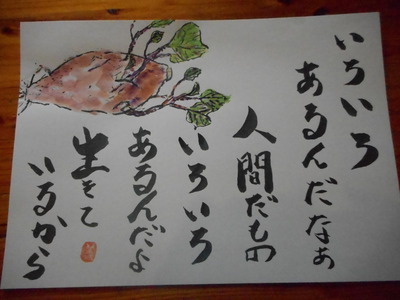 いろいろ
あるんだなあ
人間だもの
いろいろ
あるんだよ
生きて
いるから